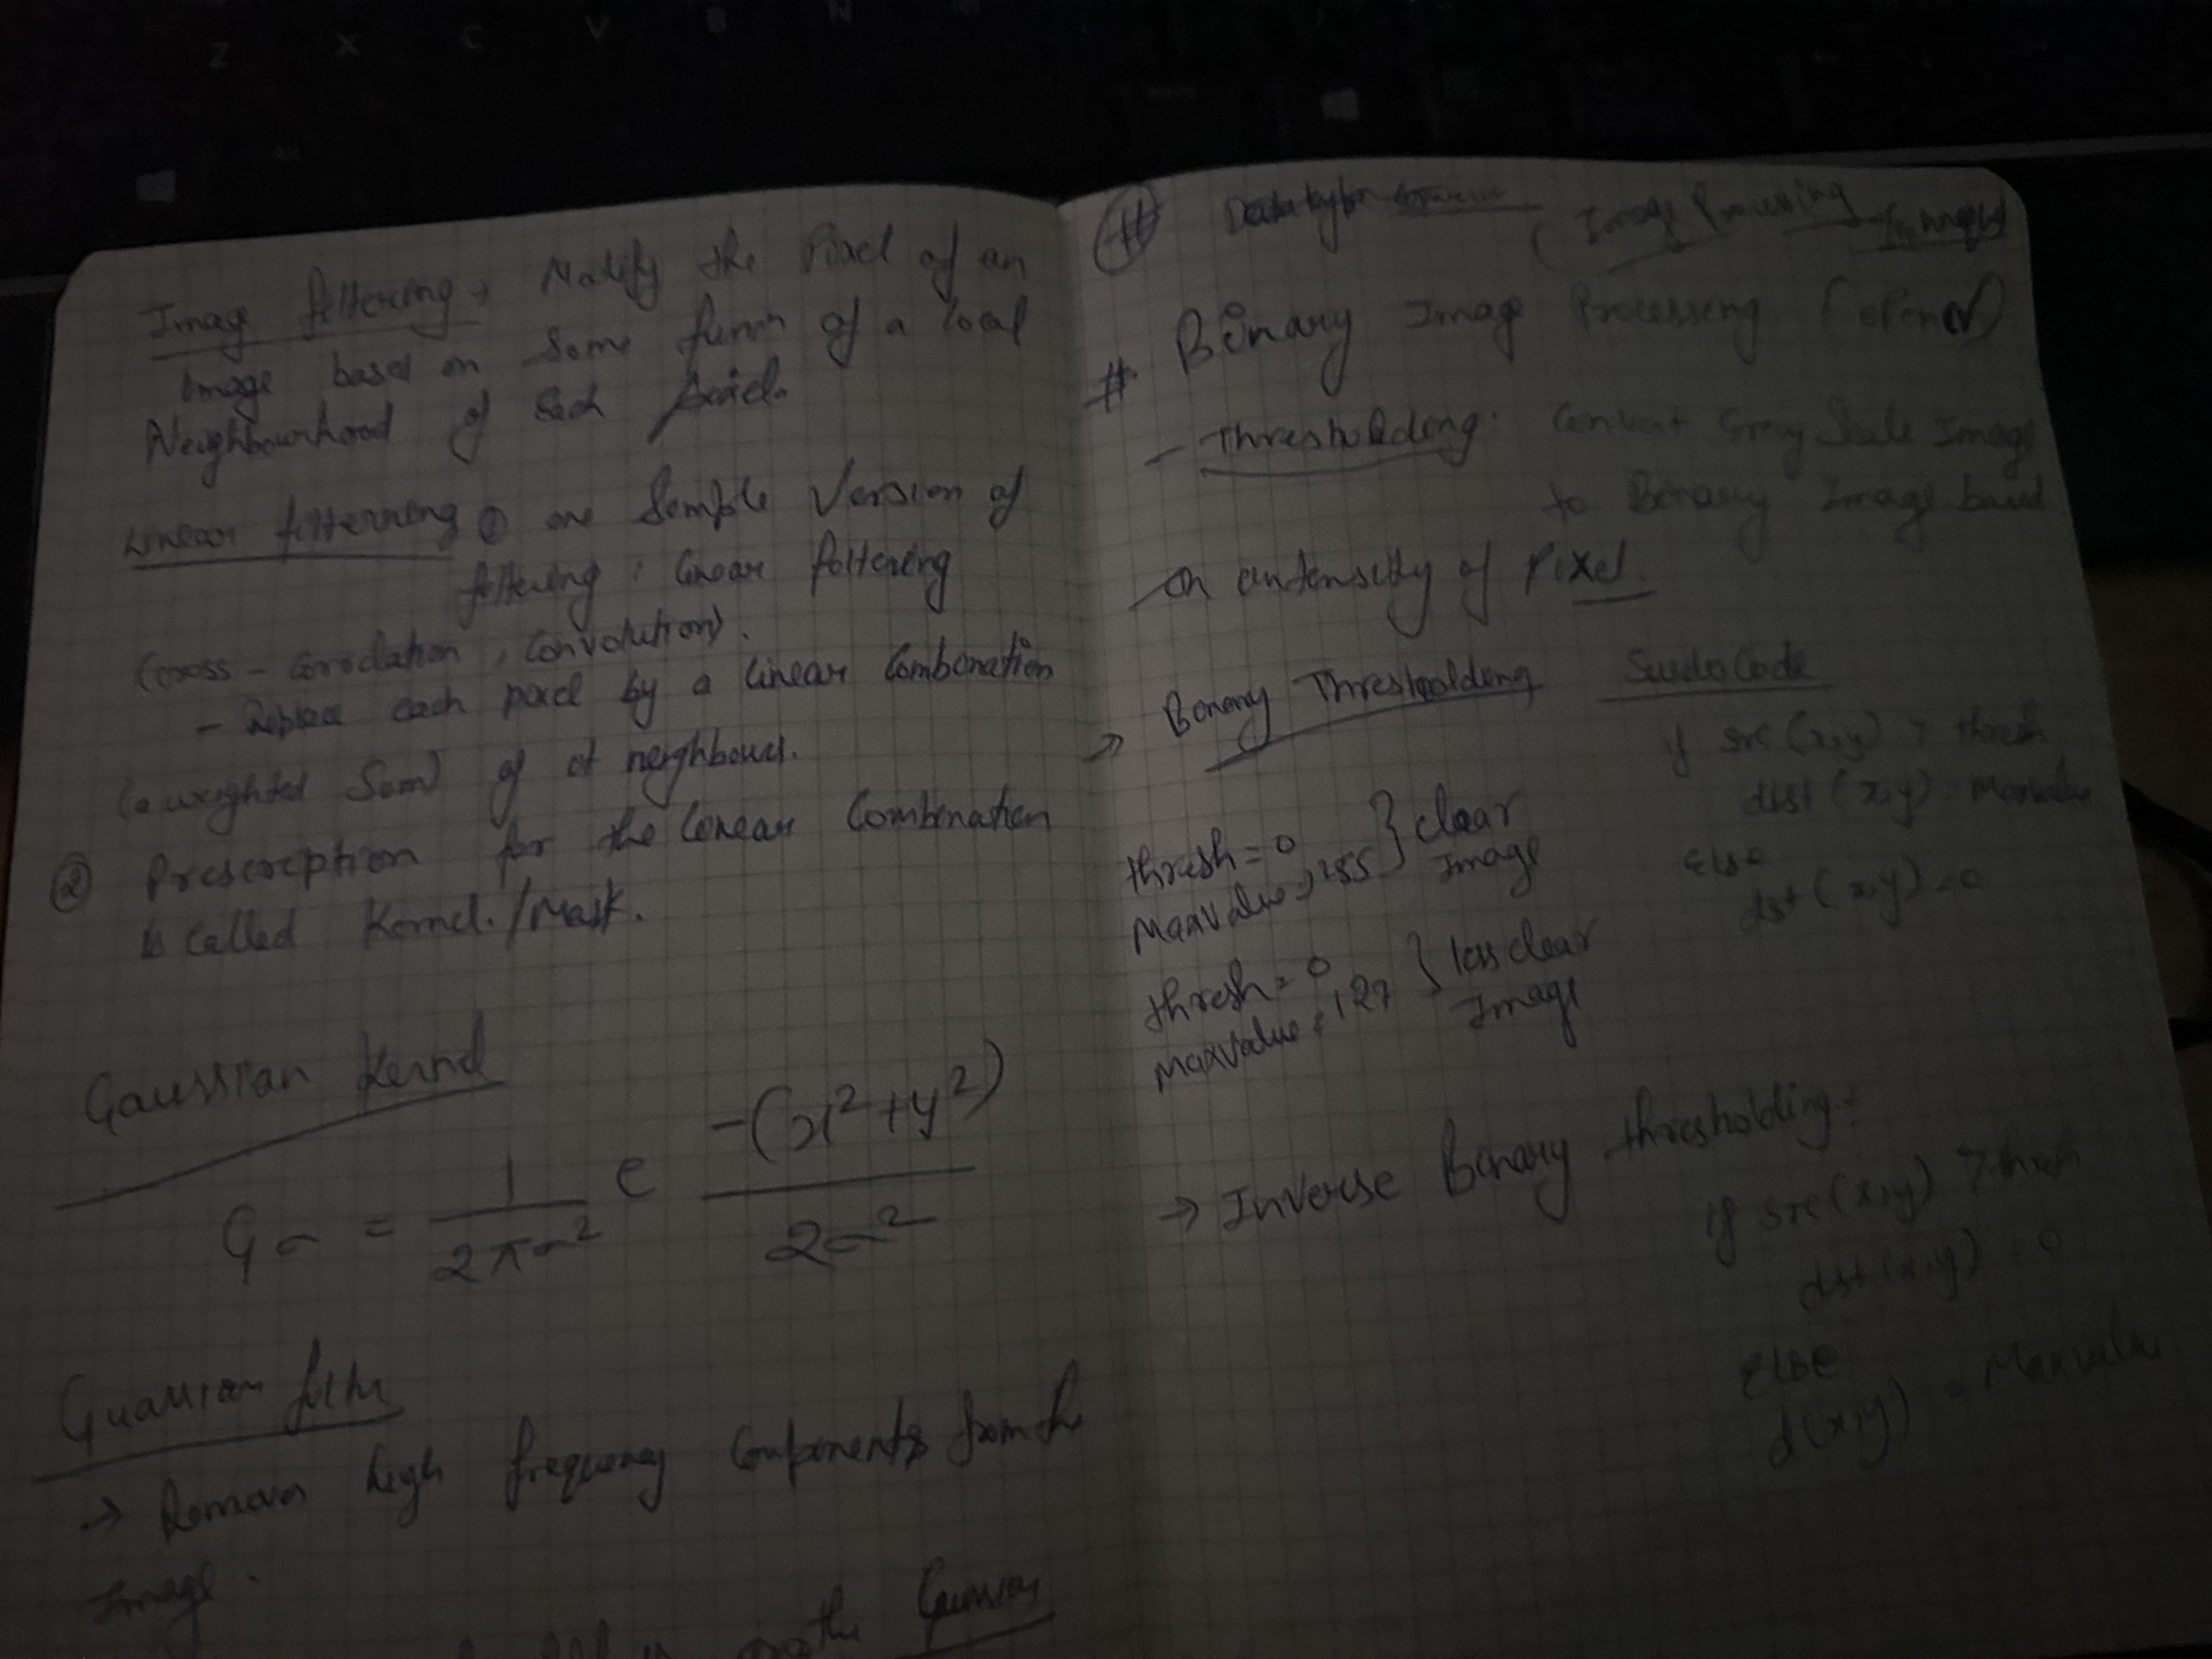 Z X C V B N
Imag filtering → Modify the Pixel of an
Image based on some funcn of a local
Neighbourhood of each pixel.
Linear filterring ① one Simple Version of
filtering : linear filtering
(cross - correlation , Convolution).
- Replace each pixel by a linear Combination
(a weighted Sum) of it neighbours.
② Prescreption for the linear Combination
is called Kernel. / Mask.
Gaussian Kernel
Gσ = 1/2πσ² e -(x²+y²)/2σ²
Guassian filter
→ Removes high frequency Components from the
Image.
the Gaussian
#
( Image Processing
# Binary Imag Processing (openCV)
- Thresholding: Convert Gray Scale Image
to Binary Image based
on intensity of Pixel.
→ Binary Thresholding
SudoCode
if src (x,y) > thresh
dst (x,y) Maxvalue
Else
dst (x,y) = 0
thresh = 0
Maxvalue = 255 } clear Image
thresh = 0
Maxvalue = 127 } less clear Image
→ Inverse Binary thresholding:-
if src(x,y) > thresh
dst (x,y) 0
ELSE
d(x,y) = Maxvalue